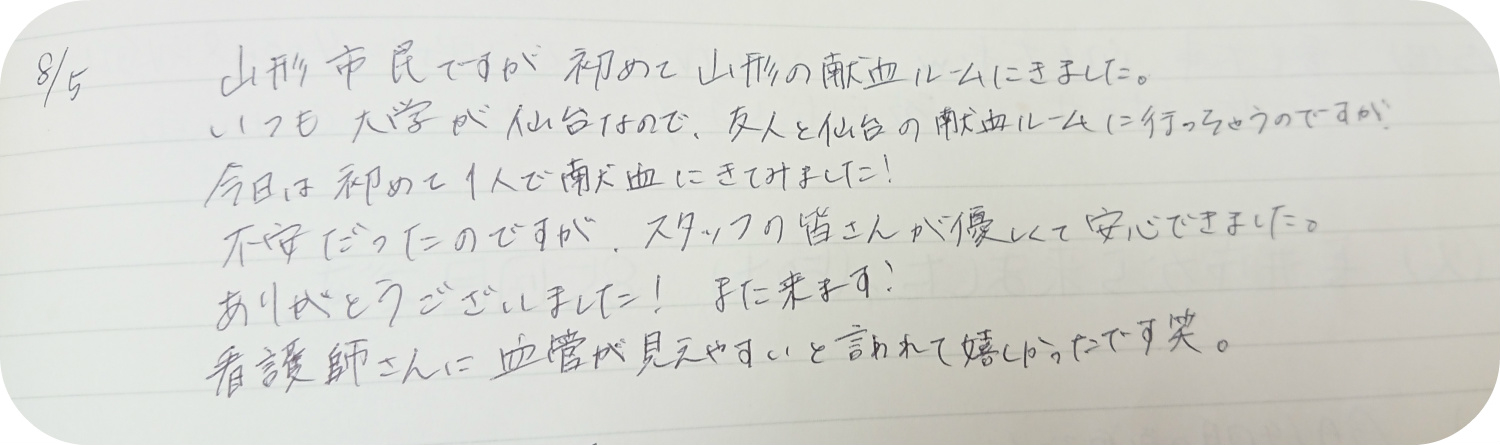 8/5 山形市民ですが初めて山形の献血ルームにきました。
いつも大学が仙台なので、友人と仙台の献血ルームに行っちゃうのですが
今日は初めて1人で献血にきてみました!
不安だったのですが、スタッフの皆さんが優しくて安心できました。
ありがとうございました! また来ます!
看護師さんに血管が見えやすいと言われて嬉しかったです笑。